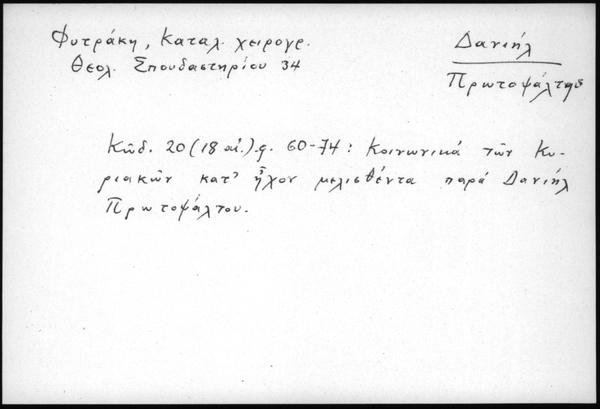 Φυτράκη, Καταλ. χειρογρ.
Θεολ. Σπουδαστηρίου 34
Δανιήλ
Πρωτοψάλτης
Κῶδ. 20 (18 αἰ.) φ. 60-74: Κοινωνικά τῶν Κυ-
ριακῶν κατ' ἦχον μελισθέντα παρά Δανιήλ
Πρωτοψάλτου.